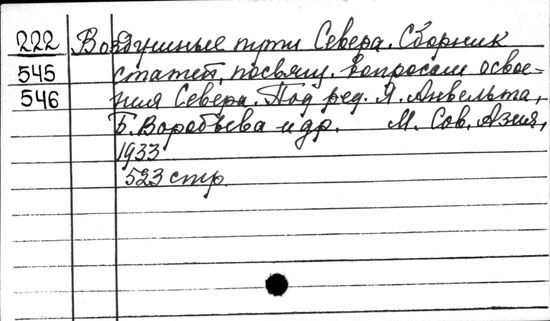 222 Воздушные пути Севера. Сборник
545 статей, посвящ. вопросам освое-
546 ния Севера. Под ред. Я. Анвельта,
Б. Воробьева и др. М. Сов. Азия,
1933
523 стр.